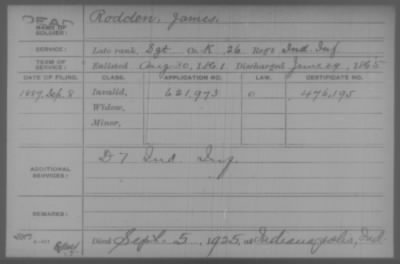 DEAD
NAME OF SOLDIER: Rodden, James.
SERVICE: Late rank, Sgt Co. K, 26 Reg't Ind. Inf.
TERM OF SERVICE: Enlisted Aug 30, 1861. Discharged June 29, 1865
DATE OF FILING. CLASS. APPLICATION NO. LAW. CERTIFICATE NO.
1887, Sep. 8 Invalid, 621,973 0 476,195
Widow,
Minor,
ADDITIONAL SERVICES: D 7 Ind Inf
REMARKS:
Died Sept. 5, 1925, at Indianapolis, Ind.